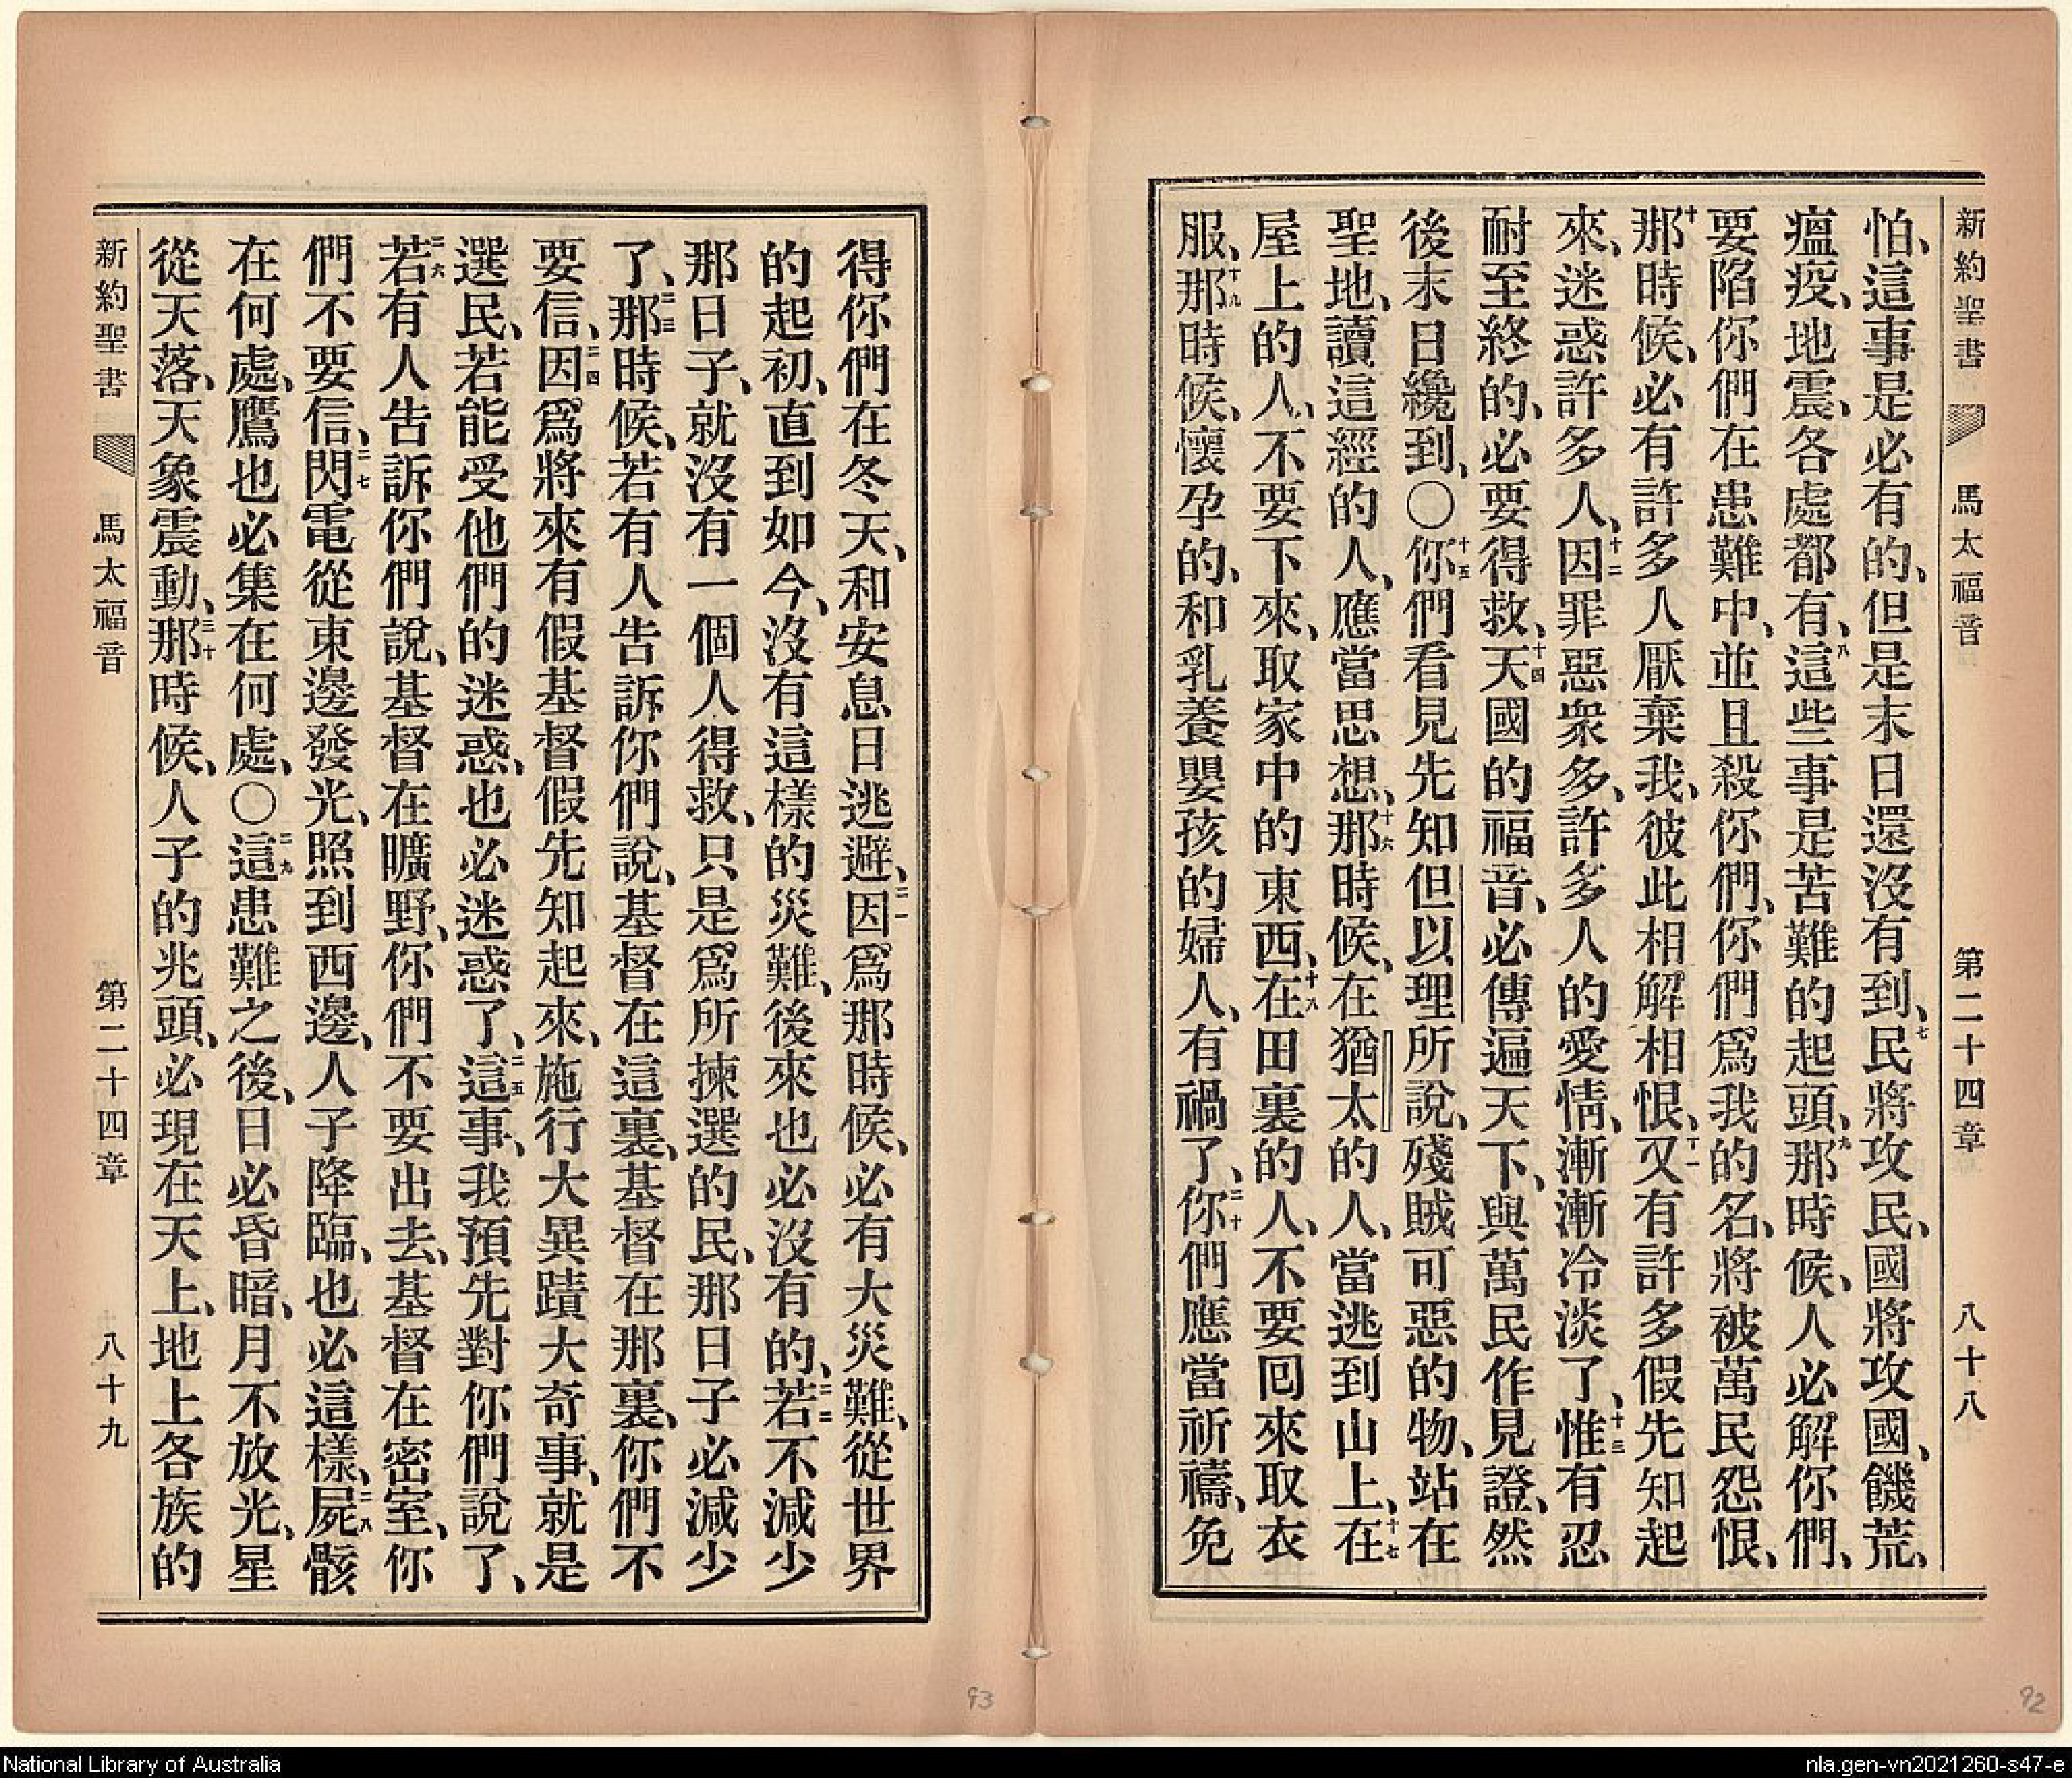 新約聖書 馬太福音 第二十四章 八十八
怕、這事是必有的、但是末日還沒有到、七民將攻民、國將攻國、饑荒、
瘟疫、地震、各處都有、八這些事是苦難的起頭、九那時候、人必解你們、
要陷你們在患難中、並且殺你們、你們爲我的名、將被萬民怨恨、
十那時候、必有許多人厭棄我、彼此相解相恨、十一又有許多假先知起
來、迷惑許多人、十二因罪惡衆多、許多人的愛情、漸漸冷淡了、十三惟有忍
耐至終的、必要得救、十四天國的福音、必傳遍天下、與萬民作見證、然
後末日纔到、〇十五你們看見先知但以理所說、殘賊可惡的物、站在
聖地、讀這經的人、應當思想、十六那時候、在猶太的人、當逃到山上、十七在
屋上的人、不要下來、取家中的東西、十八在田裏的人、不要回來取衣
服、十九那時候、懷孕的、和乳養嬰孩的婦人、有禍了、二十你們應當祈禱、免
得你們在冬天、和安息日逃避、二一因爲那時候、必有大災難、從世界
的起初、直到如今、沒有這樣的災難、後來也必沒有的、二二若不減少
那日子、就沒有一個人得救、只是爲所揀選的民、那日子必減少
了、二三那時候、若有人告訴你們說、基督在這裏、基督在那裏、你們不
要信、二四因爲將來有假基督假先知起來、施行大異蹟大奇事、就是
選民、若能受他們的迷惑、也必迷惑了、二五這事、我預先對你們說了、
二六若有人告訴你們說、基督在曠野、你們不要出去、基督在密室、你
們不要信、二七閃電從東邊發光、照到西邊、人子降臨、也必這樣、二八屍骸
在何處、鷹也必集在何處、〇二九這患難之後、日必昏暗、月不放光、星
從天落、天象震動、三十那時候、人子的兆頭、必現在天上、地上各族的
新約聖書 馬太福音 第二十四章 八十九
93
92
National Library of Australia
nla.gen-vn2021260-s47-e